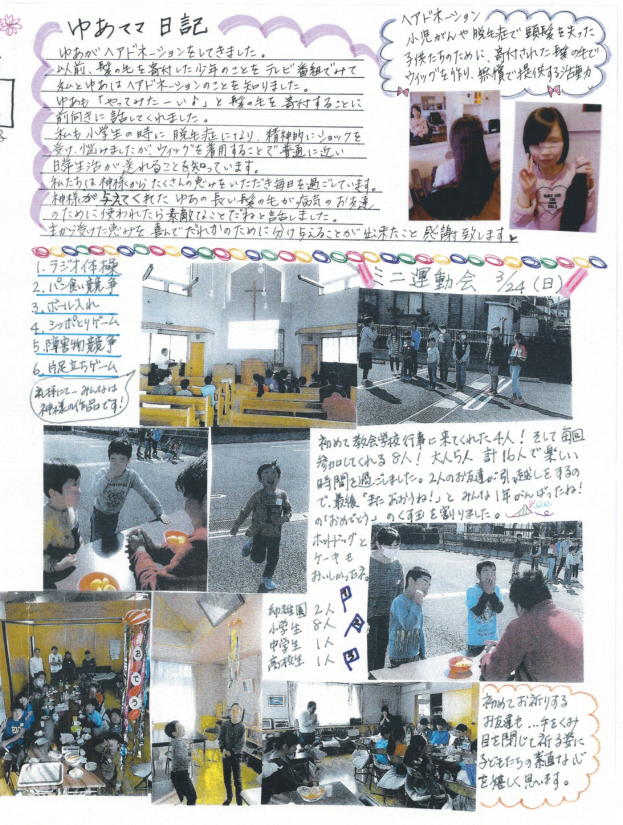 ゆあママ 日記
ゆあがヘアドネーションをしてきました。
以前、髪の毛を寄付した少年のことをテレビ番組でみて
私とゆあはヘアドネーションのことを知りました。
ゆあも「やってみたーいよ」と髪の毛を寄付することに
前向きに話してくれました。
私も小学生の時に脱毛症になり、精神的にショックを
受け、悩みましたがウィッグを着用することで普通に近い
日常生活が送れることを知っています。
私たちは神様からたくさんの恵みをいただき毎日を過ごしています。
神様が与えてくれたゆあの長い髪の毛が病気のお友達
のために使われたら素敵なことだねと話しました。
主から受けた恵みを喜んでだれかのために分け与えることが出来たこと感謝致します
ヘアドネーション
小児がんや脱毛症で頭髪を失った
子供たちのために、寄付された髪の毛で
ウィッグを作り、無償で提供する活動
1. ラジオ体操
2. パン食い競争
3. ボール入れ
4. シッポとりゲーム
5. 障害物競争
6. 片足立ちゲーム
ミニ運動会 3/24(日)
礼拝にて…みんなは
神様の作品です!
初めて教会学校行事に来てくれた4人!そして毎回
参加してくれる8人!大人5人 計16人で楽しい
時間を過ごしました。2人のお友達が引っ越しをするの
で、最後「またあおうね!」とみんな1年がんばったね!
の「おめでとう」のくす玉を割りました。
ホットドッグと
ケーキも
おいしかったネ。
幼稚園 2人
小学生 8人
中学生 1人
高校生 1人
1
2
3
おめでとう
初めてお祈りする
お友達も…手をくみ
目を閉じて祈る姿に
子どもたちの素直な心
を嬉しく思います。